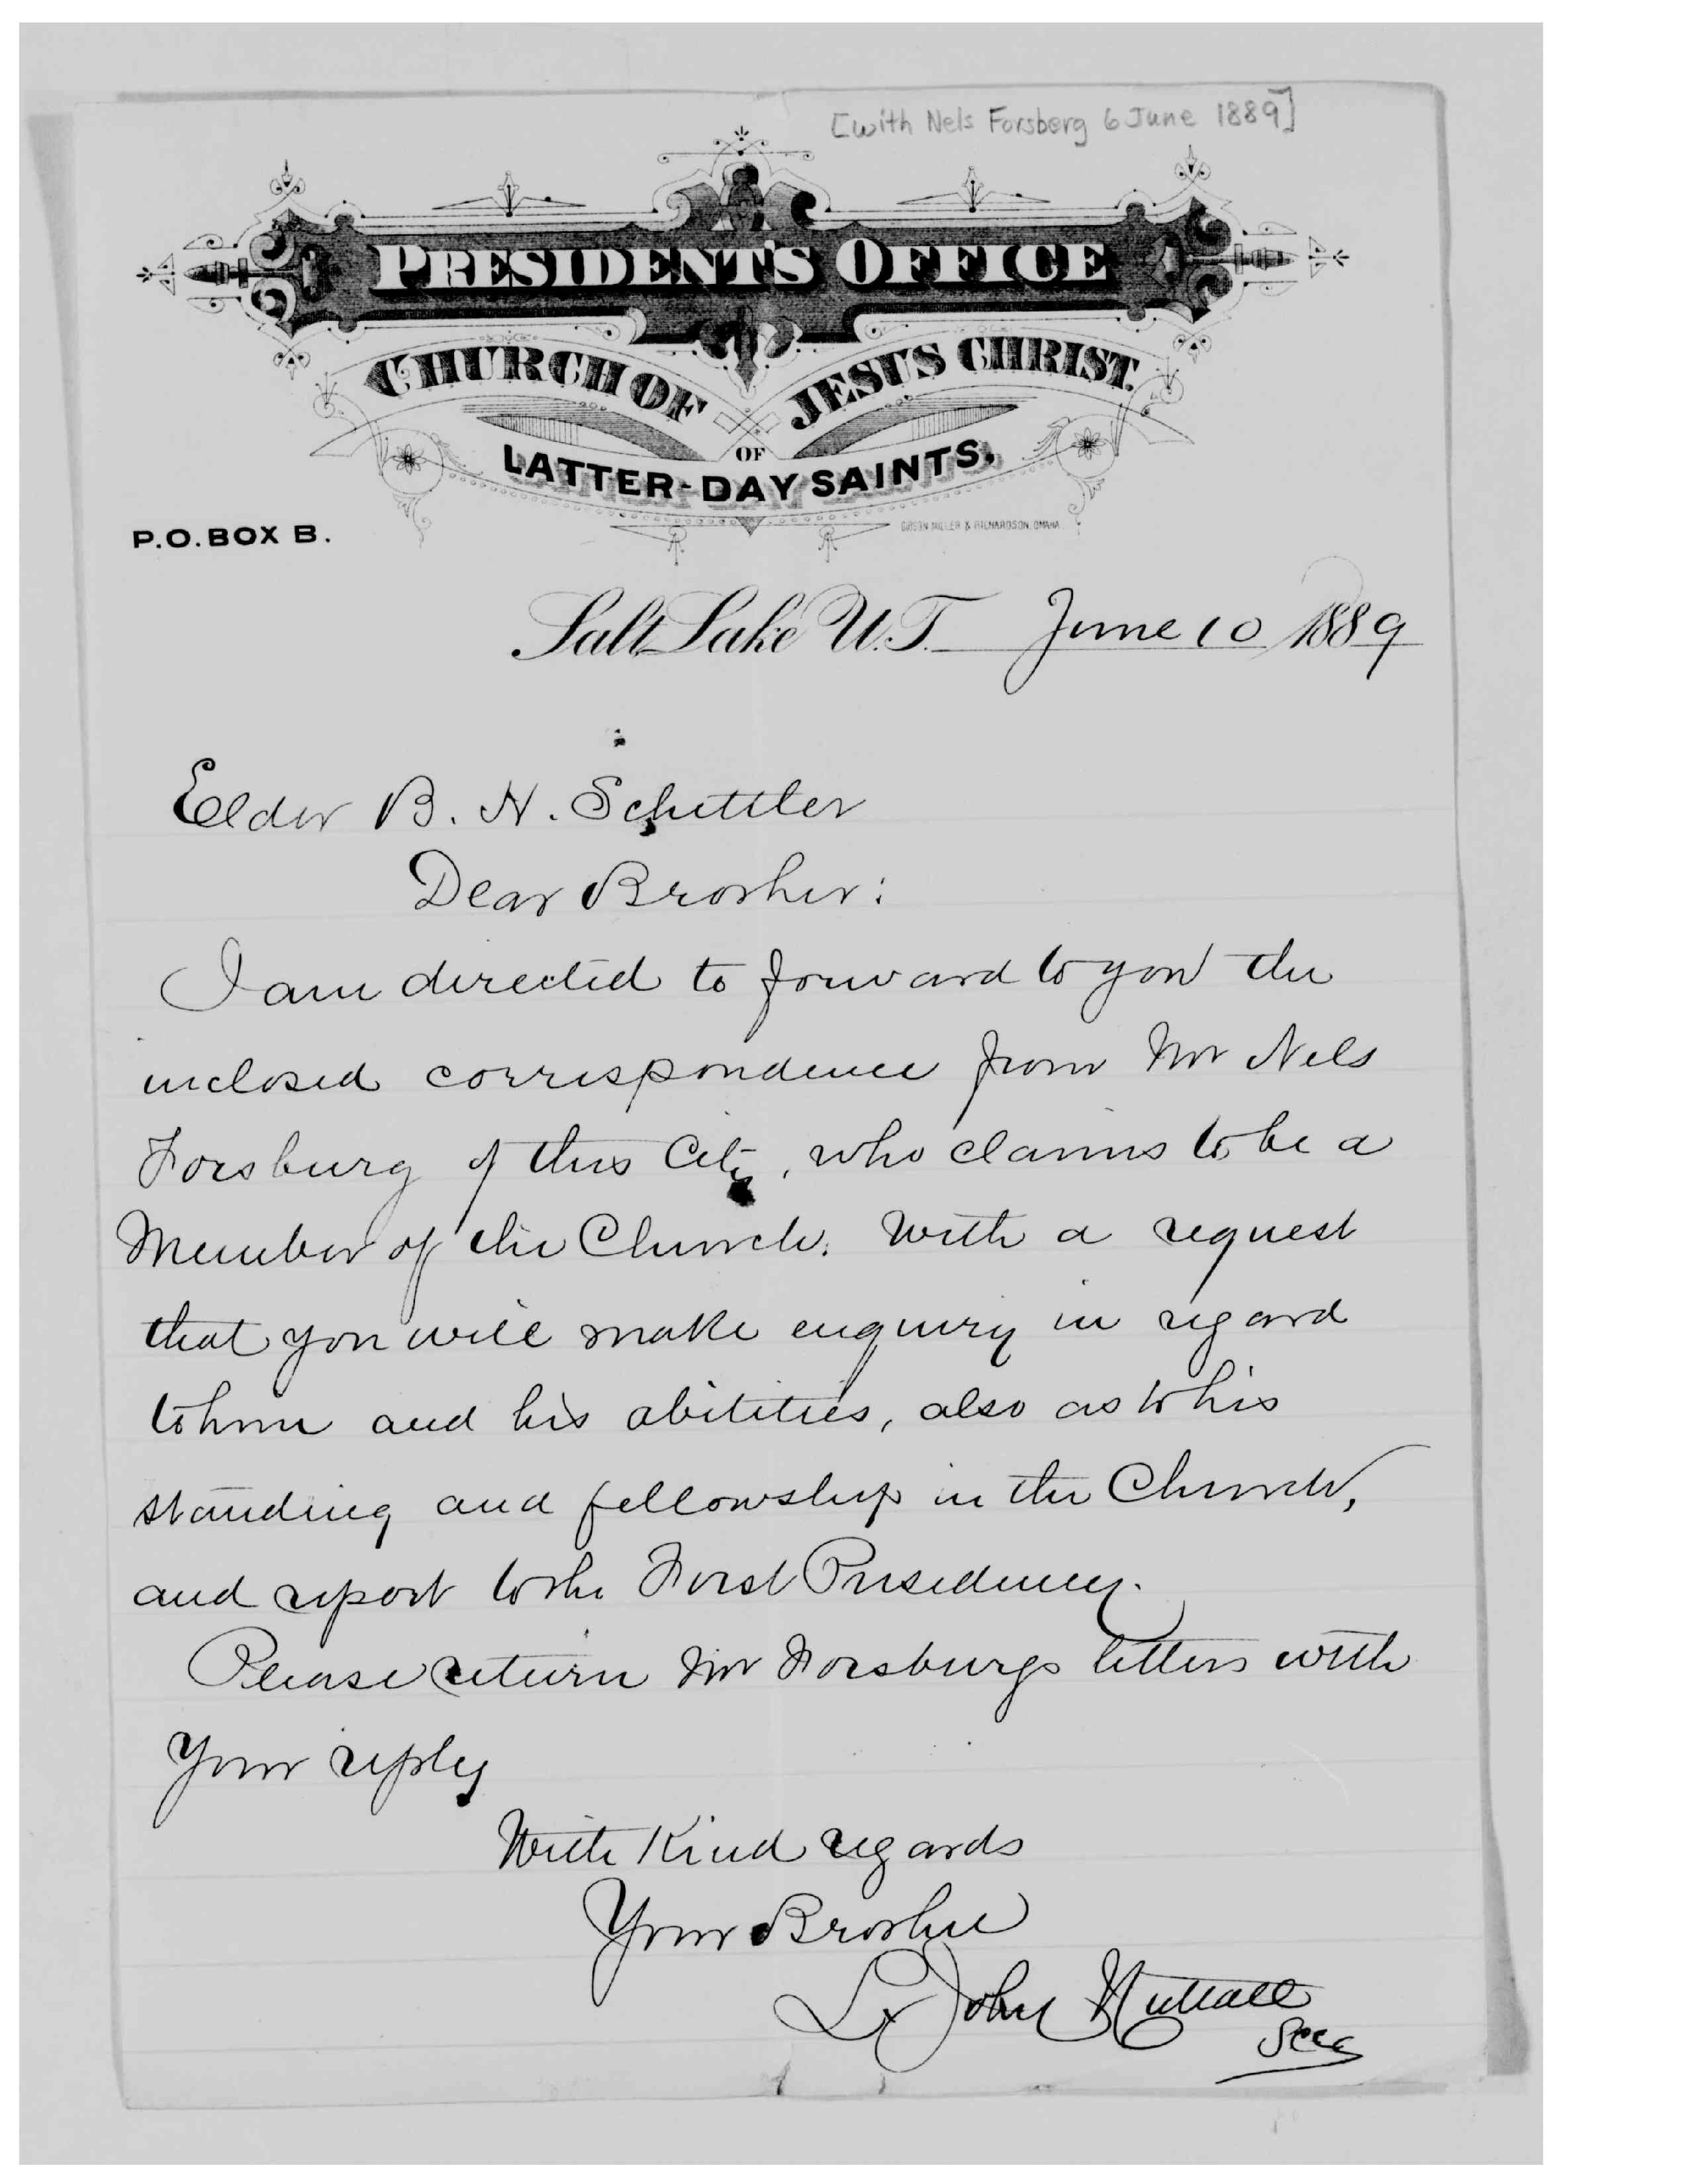 [with Nels Forsberg 6 June 1889]
PRESIDENT'S OFFICE
CHURCH OF JESUS CHRIST
OF
LATTER-DAY SAINTS.
GIBSON MILLER & RICHARDSON, OMAHA
P.O. BOX B.
Salt Lake U.T. June 10 1889
Elder B. H. Schettler
Dear Brother:
I am directed to forward to you the
inclosed correspondence from Mr Nels
Forsburg of this City, who claims to be a
Member of the Church. With a request
that you will make enquiry in regard
to him and his abilities, also as to his
standing and fellowship in the Church,
and report to the First Presidency.
Please return Mr Forsburgs letters with
Your reply
With Kind regards
Your Brother
L. John Nuttall
Secy